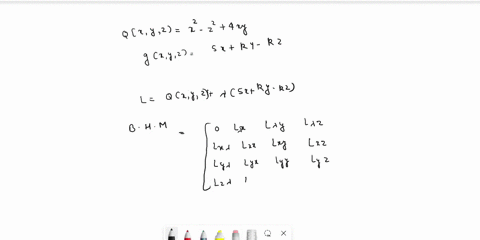 Q(x,y,z) = x² - z² + 4xy
g(x,y,z) = 5x + ky - kz
L = Q(x,y,z) + λ(5x + ky - kz)
B·H·M = [ 0 Lλx Lλy Lλz
Lxλ Lxx Lxy Lxz
Lyλ Lyx Lyy Lyz
Lzλ